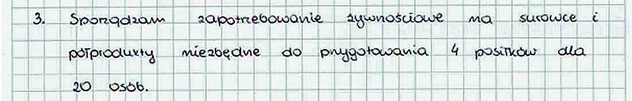 3. Sporządzam zapotrzebowanie żywnościowe na surowce i
półprodukty niezbędne do przygotowania 4 posiłków dla
20 osób.